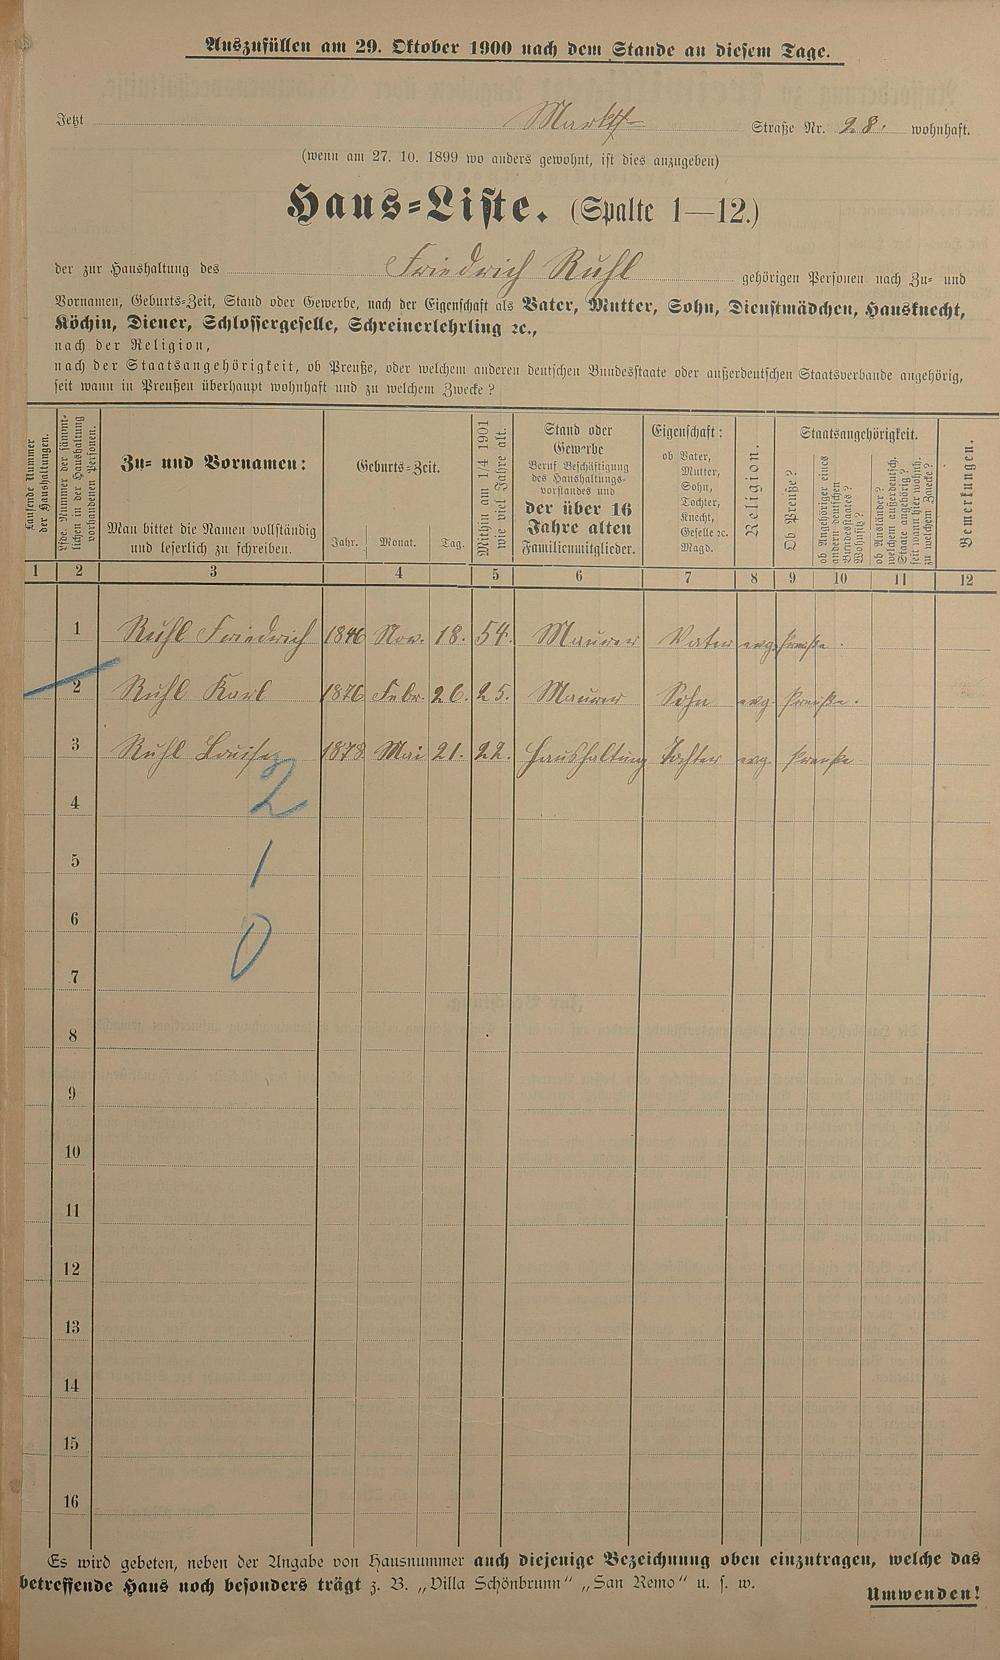 Auszufüllen am 29. Oktober 1900 nach dem Stande an diesem Tage.
Jetzt Markt Straße Nr. 28. wohnhaft.
(wenn am 27. 10. 1899 wo anders gewohnt, ist dies anzugeben)
Haus-Liste. (Spalte 1—12.)
der zur Haushaltung des Friedrich Ruhl gehörigen Personen nach Zu- und
Vornamen, Geburts-Zeit, Stand oder Gewerbe, nach der Eigenschaft als Vater, Mutter, Sohn, Dienstmädchen, Hausknecht,
Köchin, Diener, Schlossergeselle, Schreinerlehrling ꝛc.,
nach der Religion,
nach der Staatsangehörigkeit, ob Preuße, oder welchem anderen deutschen Bundesstaate oder außerdeutschen Staatsverbande angehörig,
seit wann in Preußen überhaupt wohnhaft und zu welchem Zwecke?
Laufende Nummer
der Haushaltungen.
Lfde. Nummer der sämmt-
lichen in der Haushaltung
vorhandenen Personen.
Zu- und Vornamen:
Man bittet die Namen vollständig
und leserlich zu schreiben.
Geburts-Zeit.
Jahr. Monat. Tag.
Mithin am 1/4 1901
wie viel Jahre alt.
Stand oder
Gewerbe
Beruf Beschäftigung
des Haushaltungs-
vorstandes und
der über 16
Jahre alten
Familienmitglieder.
Eigenschaft:
ob Vater,
Mutter,
Sohn,
Tochter,
Knecht,
Geselle ꝛc.
Magd.
Religion.
Staatsangehörigkeit.
Ob Preuße?
ob Angehöriger eines
andern deutschen
Bundesstaates?
Wohnsitz?
ob Ausländer?
welchem außerdeutsch.
Staate angehörig?
seit wann hier wohnh.
zu welchem Zwecke?
Bemerkungen.
1 2 3 4 5 6 7 8 9 10 11 12
1 Ruhl Friedrich 1846 Nov. 18. 54. Maurer Vater evg. Preuße.
2 Ruhl Karl 1876 Febr. 26. 25. Maurer Sohn evg. Preuße.
3 Ruhl Louise 1878 Mai 21. 22. Haushaltung Tochter evg. Preuße
2
4
1
5
6
0
7
8
9
10
11
12
13
14
15
16
Es wird gebeten, neben der Angabe von Hausnummer auch diejenige Bezeichnung oben einzutragen, welche das
betreffende Haus noch besonders trägt z. B. „Villa Schönbrunn“ „San Remo“ u. s. w.
Umwenden!